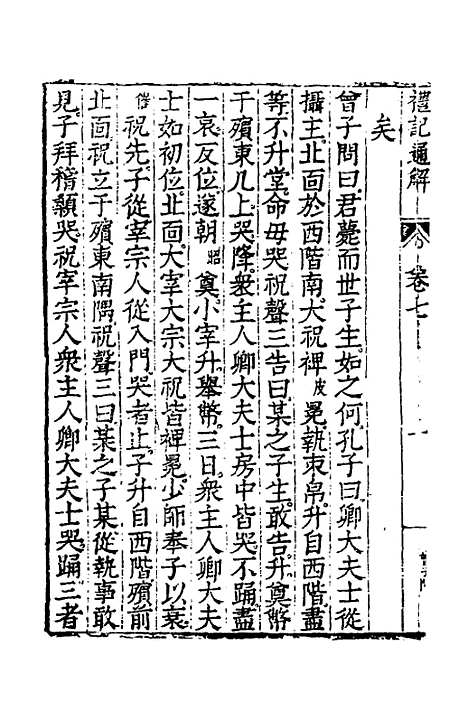 禮記通解
卷七
矣
曾子問曰君薨而世子生如之何孔子曰卿大夫士從
攝主北面於西階南大祝裨皮冕執束帛升自西階盡
等不升堂命毋哭祝聲三告曰某之子生敢告升奠幣
于殯東几上哭降衆主人卿大夫士房中皆哭不踊盡
一哀反位遂朝昭奠小宰升舉幣三日衆主人卿大夫
士如初位北面大宰大宗大祝皆裨冕少師奉子以衰
祝先子從宰宗人從入門哭者止子升自西階殯前
北面祝立于殯東南隅祝聲三曰某之子某從執事敢
見子拜稽顙哭祝宰宗人衆主人卿大夫士哭踊三者